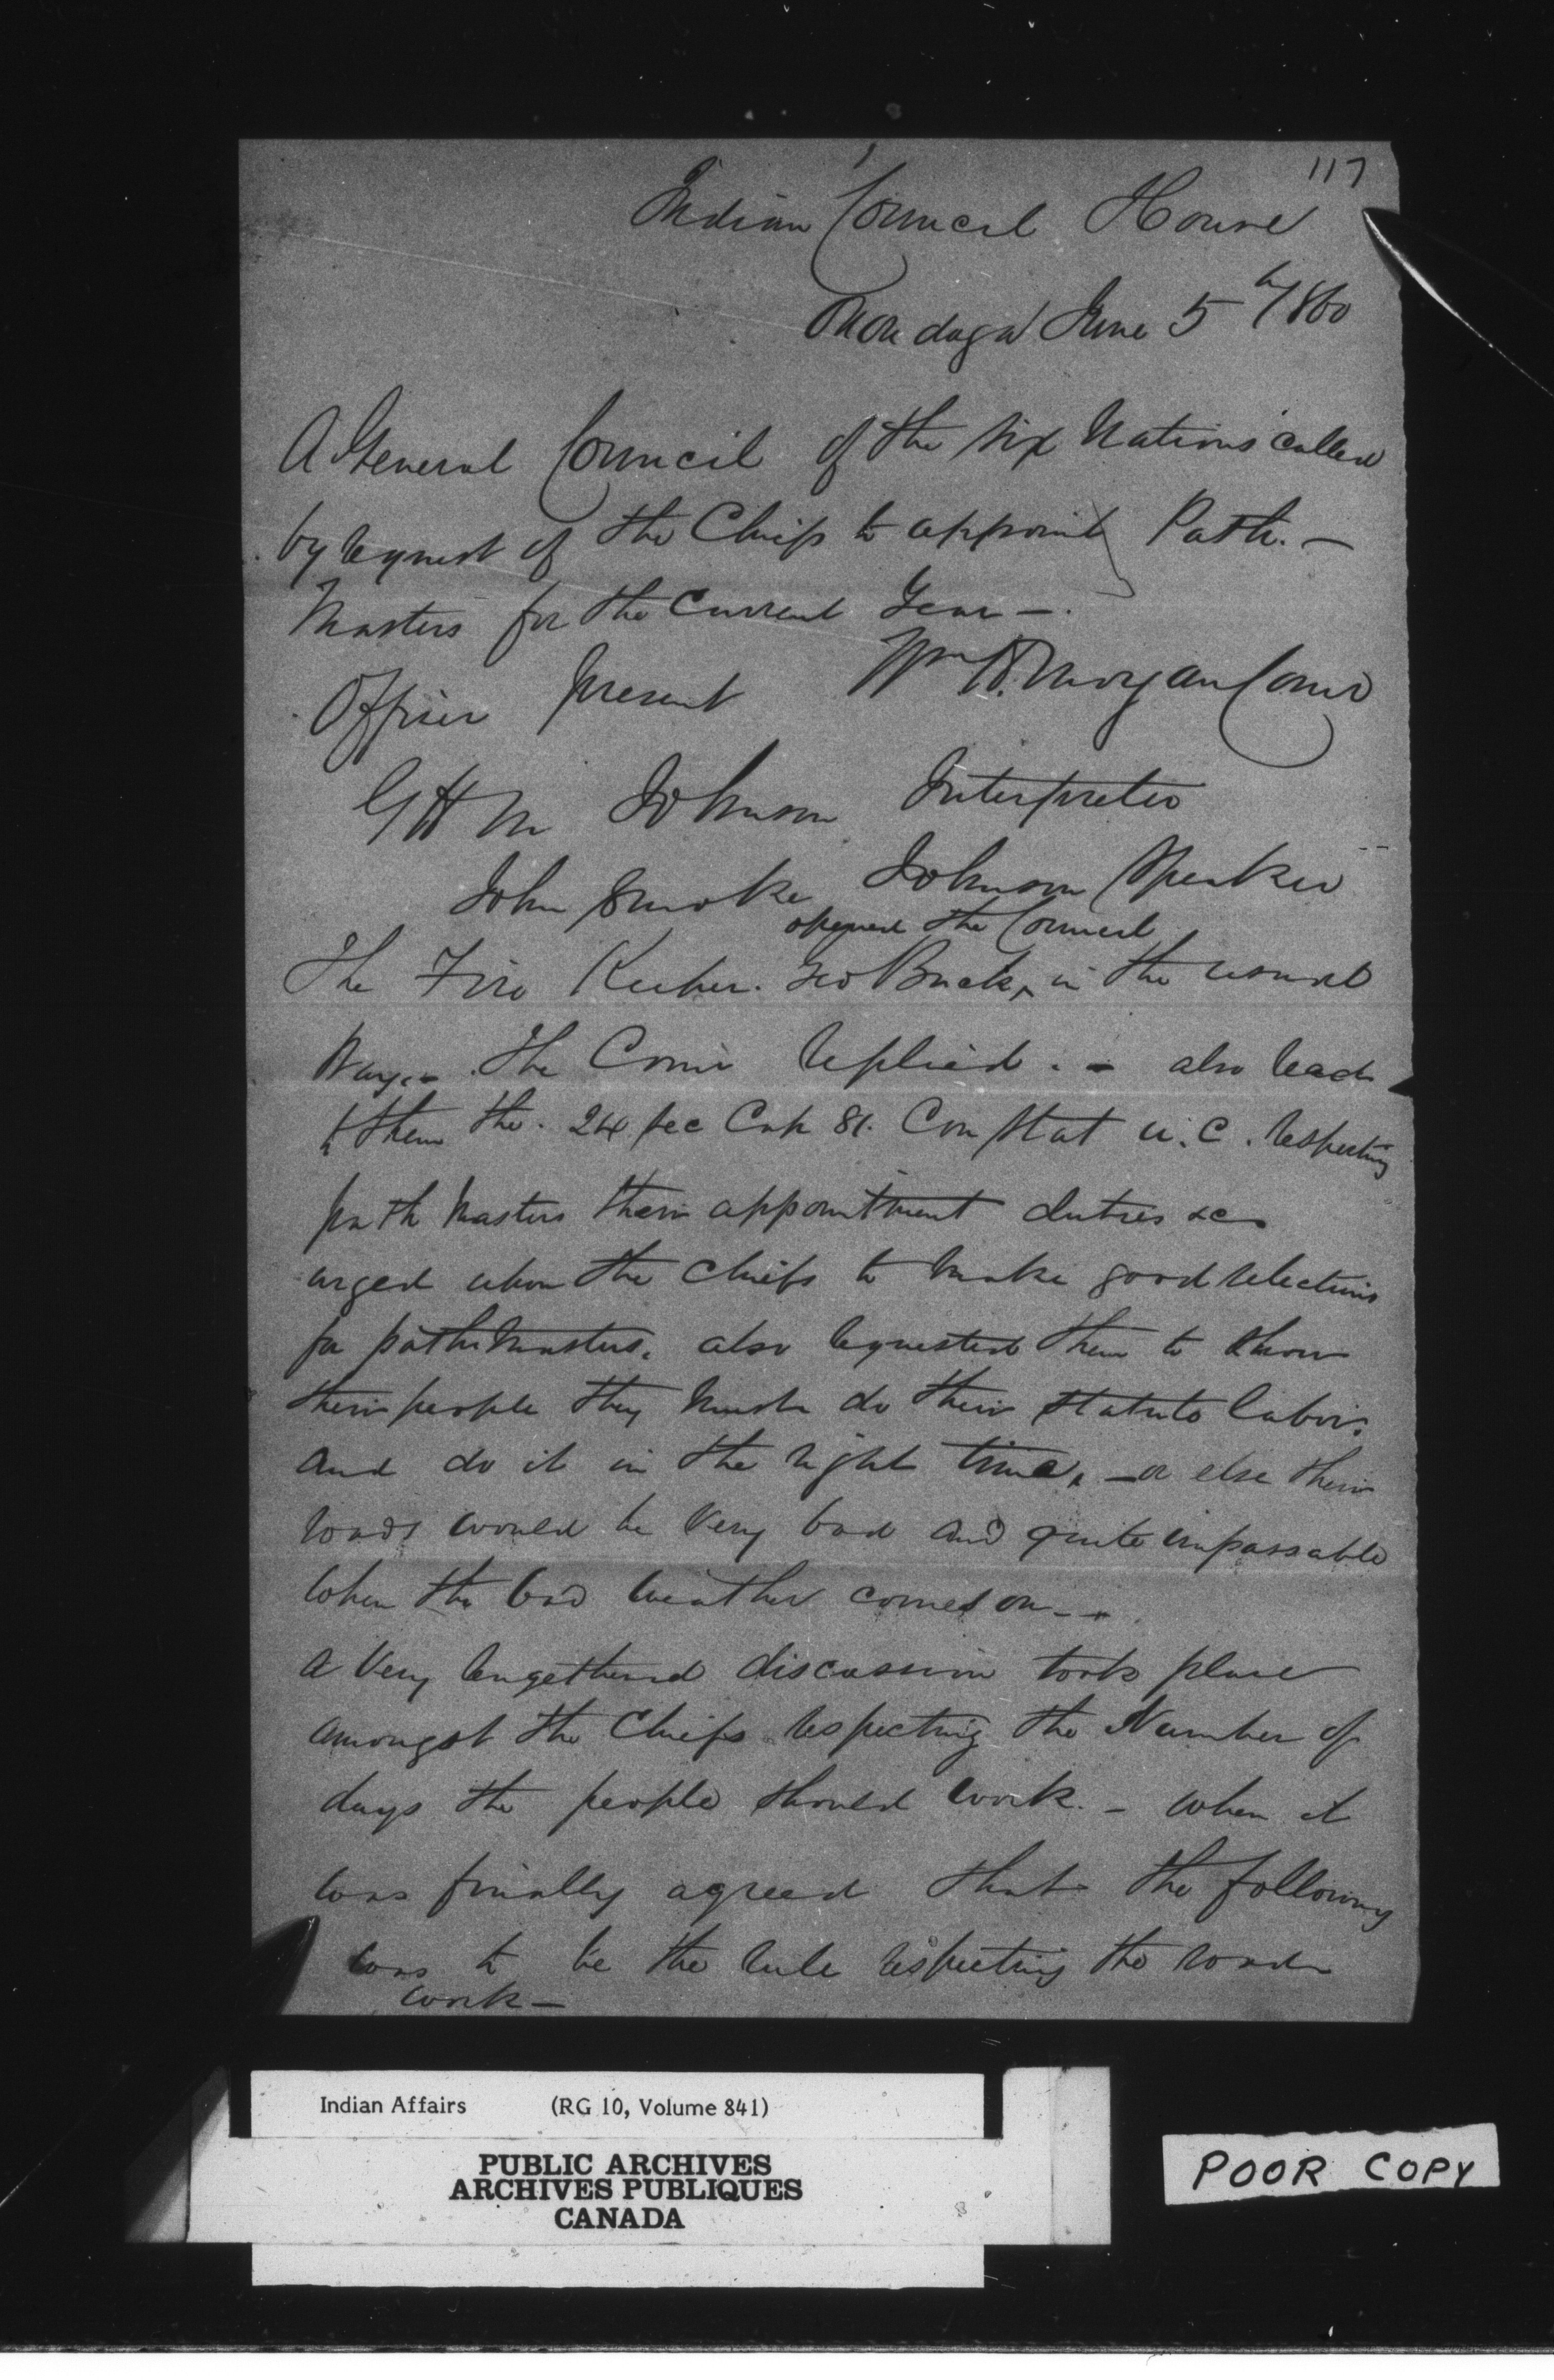 117
Indian Council House
Onondaga June 5th/860
A General Council of the Six Nations called
by request of the Chiefs to appoint Path. —
Masters for the Current Year —.
Officer present Wm R. Morgan Comr
G H M Johnson Interpreter
John Smoke Johnson Speaker
opened the Council
The Fire Keeper. Geo Buck ‸ in the usual
Way. — The Comr replied. — also read
to them the. 24 Sec Cap 81. Con Stat U. C. respecting
path Masters their appointment duties &c
urged upon the chiefs to make good selections
for pathmasters. also requested them to show
their people they must do their Statute labor.
and do it in the right time, — or else their
roads would be very bad and quite impassable
when the bad weather comes on — -
a Very lengethened discussion took place
amongst the Chiefs respecting the Number of
days the people should work. — when it
was finally agreed that the following
was to be the rule respecting the road
work —
Indian Affairs (RG 10, Volume 841)
PUBLIC ARCHIVES
ARCHIVES PUBLIQUES
CANADA
POOR COPY